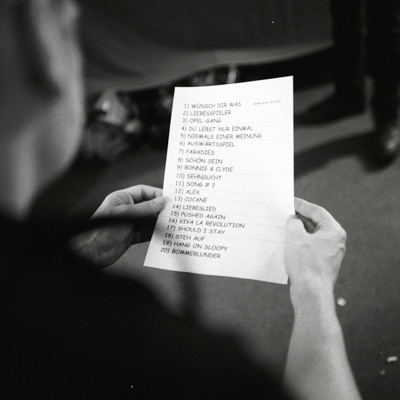 1) WÜNSCH DIR WAS
2) LIEBESSPIELER
3) OPEL-GANG
4) DU LEBST NUR EINMAL
5) NIEMALS EINER MEINUNG
6) AUSWÄRTSSPIEL
7) PARADIES
8) SCHÖN SEIN
9) BONNIE & CLYDE
10) SEHNSUCHT
11) SONG # 2
12) ALEX
13) COCANE
14) LIEBESLIED
15) PUSHED AGAIN
16) VIVA LA REVOLUTION
17) SHOULD I STAY
18) STEH AUF
19) HANG ON SLOOPY
20) BOMMERLUNDER